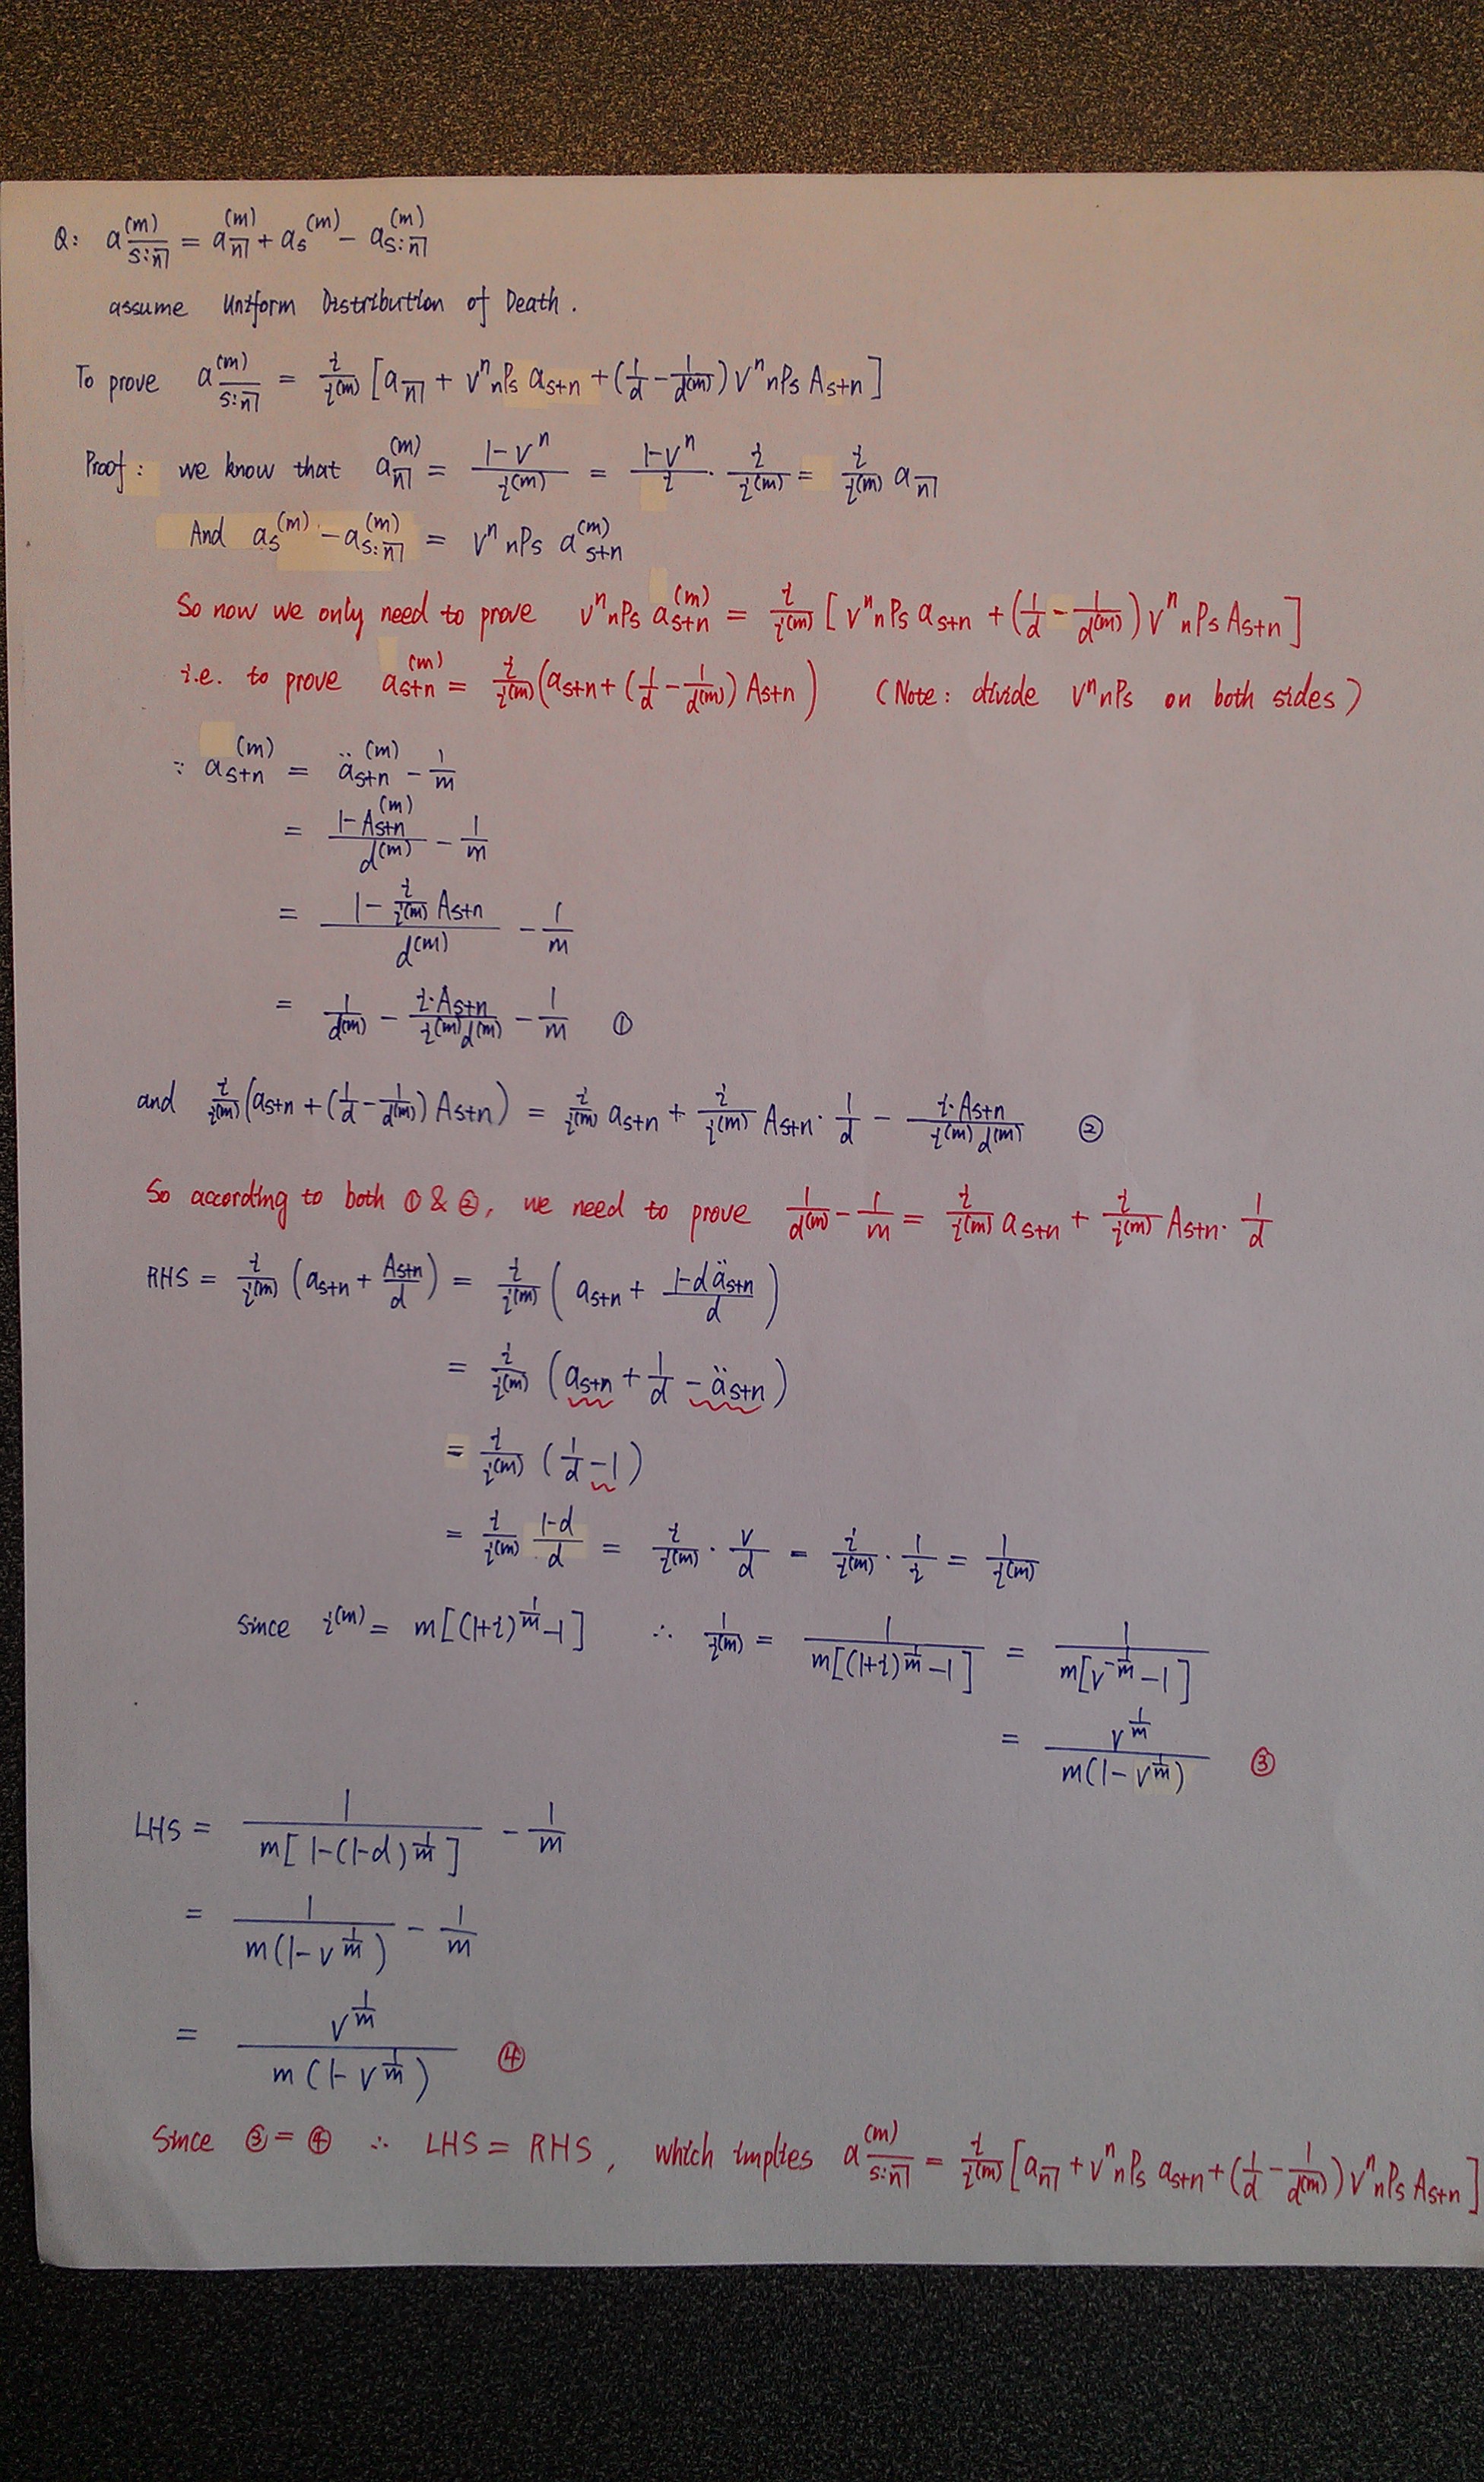 Q: a^(m)_{\overline{s:n̅|}} = a^(m)_{n̅|} + a_s^(m) - a^(m)_{s:n̅|}
assume Uniform Distribution of Death.
To prove a^(m)_{\overline{s:n̅|}} = i/i^(m) [a_{n̅|} + v^n nPs a_{s+n} + (1/d - 1/d^(m)) v^n nPs A_{s+n}]
Proof: we know that a^(m)_{n̅|} = (1-v^n)/i^(m) = (1-v^n)/i · i/i^(m) = i/i^(m) a_{n̅|}
And a_s^(m) - a^(m)_{s:n̅|} = v^n nPs a^(m)_{s+n}
So now we only need to prove v^n nPs a^(m)_{s+n} = i/i^(m) [v^n nPs a_{s+n} + (1/d - 1/d^(m)) v^n nPs A_{s+n}]
i.e. to prove a^(m)_{s+n} = i/i^(m) (a_{s+n} + (1/d - 1/d^(m)) A_{s+n}) (Note: divide v^n nPs on both sides)
∵ a^(m)_{s+n} = ä^(m)_{s+n} - 1/m
= (1 - A^(m)_{s+n})/d^(m) - 1/m
= (1 - i/i^(m) A_{s+n})/d^(m) - 1/m
= 1/d^(m) - (i·A_{s+n})/(i^(m) d^(m)) - 1/m ①
and i/i^(m) (a_{s+n} + (1/d - 1/d^(m)) A_{s+n}) = i/i^(m) a_{s+n} + i/i^(m) A_{s+n} · 1/d - (i·A_{s+n})/(i^(m) d^(m)) ②
So according to both ① & ②, we need to prove 1/d^(m) - 1/m = i/i^(m) a_{s+n} + i/i^(m) A_{s+n} · 1/d
RHS = i/i^(m) (a_{s+n} + A_{s+n}/d) = i/i^(m) (a_{s+n} + (1-dä_{s+n})/d)
= i/i^(m) (a_{s+n} + 1/d - ä_{s+n})
= i/i^(m) (1/d - 1)
= i/i^(m) (1-d)/d = i/i^(m) · v/d = i/i^(m) · 1/i = 1/i^(m)
Since i^(m) = m[(1+i)^{1/m} - 1] ∴ 1/i^(m) = 1/(m[(1+i)^{1/m} - 1]) = 1/(m[v^{-1/m} - 1])
= v^{1/m}/(m(1 - v^{1/m})) ③
LHS = 1/(m[1-(1-d)^{1/m}]) - 1/m
= 1/(m(1-v^{1/m})) - 1/m
= v^{1/m}/(m(1-v^{1/m})) ④
Since ③ = ④ ∴ LHS = RHS, which implies a^(m)_{\overline{s:n̅|}} = i/i^(m) [a_{n̅|} + v^n nPs a_{s+n} + (1/d - 1/d^(m)) v^n nPs A_{s+n}]